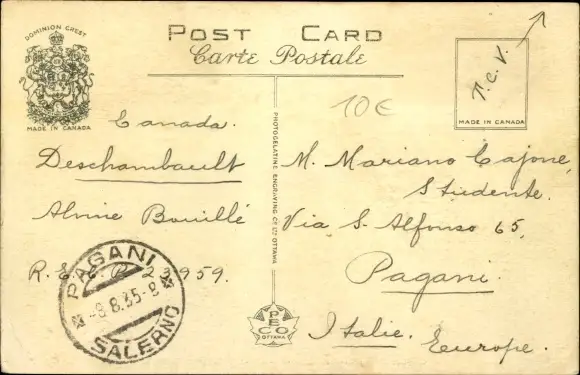 DOMINION CREST
MADE IN CANADA
POST CARD
Carte Postale
T.C.V.
MADE IN CANADA
10€
PHOTOGELATINE ENGRAVING CO LTD OTTAWA
Canada.
Deschambault
Almie Bouillé
23959.
PAGANI
-8.8.35-8
SALERNO
M. Mariano Cajone,
Studente.
Via S. Alfonso 65,
Pagani.
Italie.
Europe.
PECO
OTTAWA